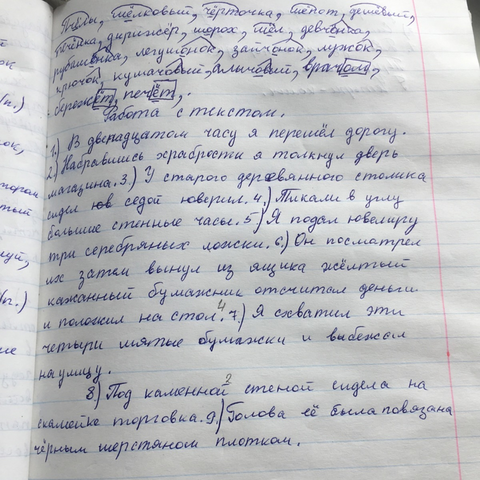 Пчёлы, шёлковый, чёрточка, шёпот, дешёвый,
печёнка, дирижёр, шорох, шёл, девчонка,
рубашонка, легушонок, зайчонок, лужок,
крючок, кумачовый, плащовый, врачом,
сбережёт, печёт.
Работа с текстом.
1.) В двенадцатом часу я перешёл дорогу.
2.) Набравшись храбрости я толкнул дверь
магазина. 3.) У старого деревянного столика
сидел седой ювелир. 4.) Тикали в углу
большие стенные часы. 5.) Я подал ювелиру
три серебряных ложки. 6.) Он посмотрел
их затем вынул из ящика жёлтый
кажанный бумажник отсчитал деньги
и положил на стол. 4 7.) Я схватил эти
четыри мятые бумажки и выбежал
на улицу.
8.) Под каменной 2 стеной сидела на
скамейке торговка. 9.) Голова её была повязана
чёрным шерстяном платком.
(п.)
ок,
тый
(п.)